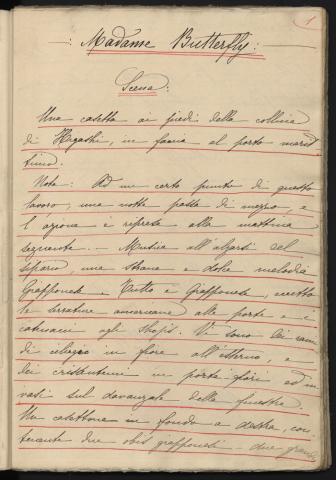 1
-: Madame Butterfly :-
Scena:
Una casetta ai piedi della collina
di Higashi, in faccia al porto marit
timo.
Nota: Ad un certo punto di questo
lavoro, una notte passa di mezzo, e
l'azione è ripresa alla mattina
seguente. — Musica all'alzarsi del
sipario, una strana e dolce melodia
Giapponese. Tutto è Giapponese, eccetto
le serrature americane alle porte e i
catenacci agli Shojis. Vi sono dei rami
di ciliegio in fiore all'esterno, e
dei crisantemi in porta fiori ed in
vasi sul davanzale della finestra.
Un cassettone in fondo a destra, con-
tenente due obis giapponesi - due grandi